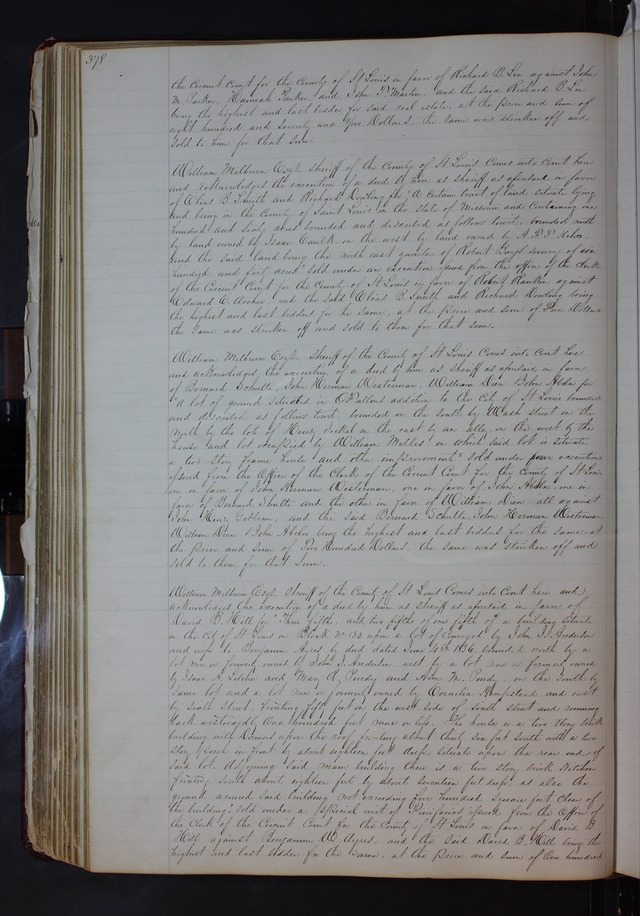 378
the Circuit Court for the County of St Louis in favor of Richard B. Lee against John
W. Parker, Hannah Parker, and John D. Martin and the said Richard B. Lee
being the highest and last bidder for said real estate, at the price and sum of
eight hundred and seventy and Dollars, the same was stricken off and
sold to him for that sum
William Milburn Esqr. Sheriff of the County of St Louis Comes into Court here
and acknowledges the execution of a deed by him as sheriff as aforesaid in favor
of Elias B. Smith and Richard Dowling for "A certain tract of land situate lying
and being in the County of Saint Louis in the State of Missouri and Containing one
hundred and sixty acres bounded and described as follows towit, bounded north
by land owned by Isaac Caulk on the west by land owned by
and the said land being the north east quarter of Robert survey of six
hundred and forty acres" sold under an execution issued from the office of the Clerk
of the Circuit Court for the County of St Louis in favor of Robert Rankin against
Edward E. Archer, and the said Elias B. Smith and Richard Dowling being
the highest and last bidders for the same, at the price and sum of Five Dollars
the same was stricken off and sold to them for that sum.
William Milburn Esqr. Sheriff of the County of St Louis Comes into Court here
and acknowledges the execution of a deed by him as sheriff as aforesaid in favor
of Bernard Schulte, John Herman Westerman, William Dien John for
"A lot of ground situated in O'Fallons addition to the City of St Louis bounded
and described as follows towit, bounded on the south by Wash street on the
north by the lot of Henry on the east by an alley, on the west by the
house and lot occupied by William on which said lot is situate
a two story frame house and other improvements" sold under four executions
issued from the Office of the Clerk of the Circuit Court for the County of St Louis
one in favor of John Herman Westerman, one in favor of John one in
favor of Bernard Schulte and the other in favor of William Dien all against
John Henry and the said Bernard Schulte, John Herman Westerman
William Dien John being the highest and last bidders for the same, at
the price and sum of Five Hundred Dollars, the same was stricken off and
sold to them for that sum.
William Milburn Esqr. Sheriff of the County of St Louis Comes into Court here and
acknowledges the execution of a deed by him as sheriff as aforesaid in favor of
David B. Hill for "Three fifths, and two fifths of one fifth of a building situate
in the City of St Louis in Block No 132 upon a lot of conveyed by John J. Anderson
and wife to Benjamin Ayres by deed dated June 10th 1836 bounded north by a
lot now or formerly owned by John J. Anderson, west by a lot now or formerly owned
by Isaac A. Letcher and Mary A. Purdy and Ann M. Purdy, on the South by
same lot and a lot now or formerly owned by Cornelia Hempstead and east
by Sixth Street. Fronting fifty feet on the west side of Sixth Street and running
back westwardly One hundred feet more or less. The house is a two story brick
building with Dormers upon the roof fronting about thirty six feet South with a two
story Porch in front by about eighteen feet deep, situate upon the rear end of
said lot. Adjoining said main building there is a two story brick Kitchen
fronting South about eighteen feet by about seventeen feet deep: as also the
ground around said building not exceeding five hundred square feet clear of
the building" sold under a Special writ of Fieri facias issued from the Office of
the Clerk of the Circuit Court for the County of St Louis in favor of David B.
Hill against Benjamin W. Ayres, and the said David B. Hill being the
highest and last bidder for the same, at the price and sum of One hundred